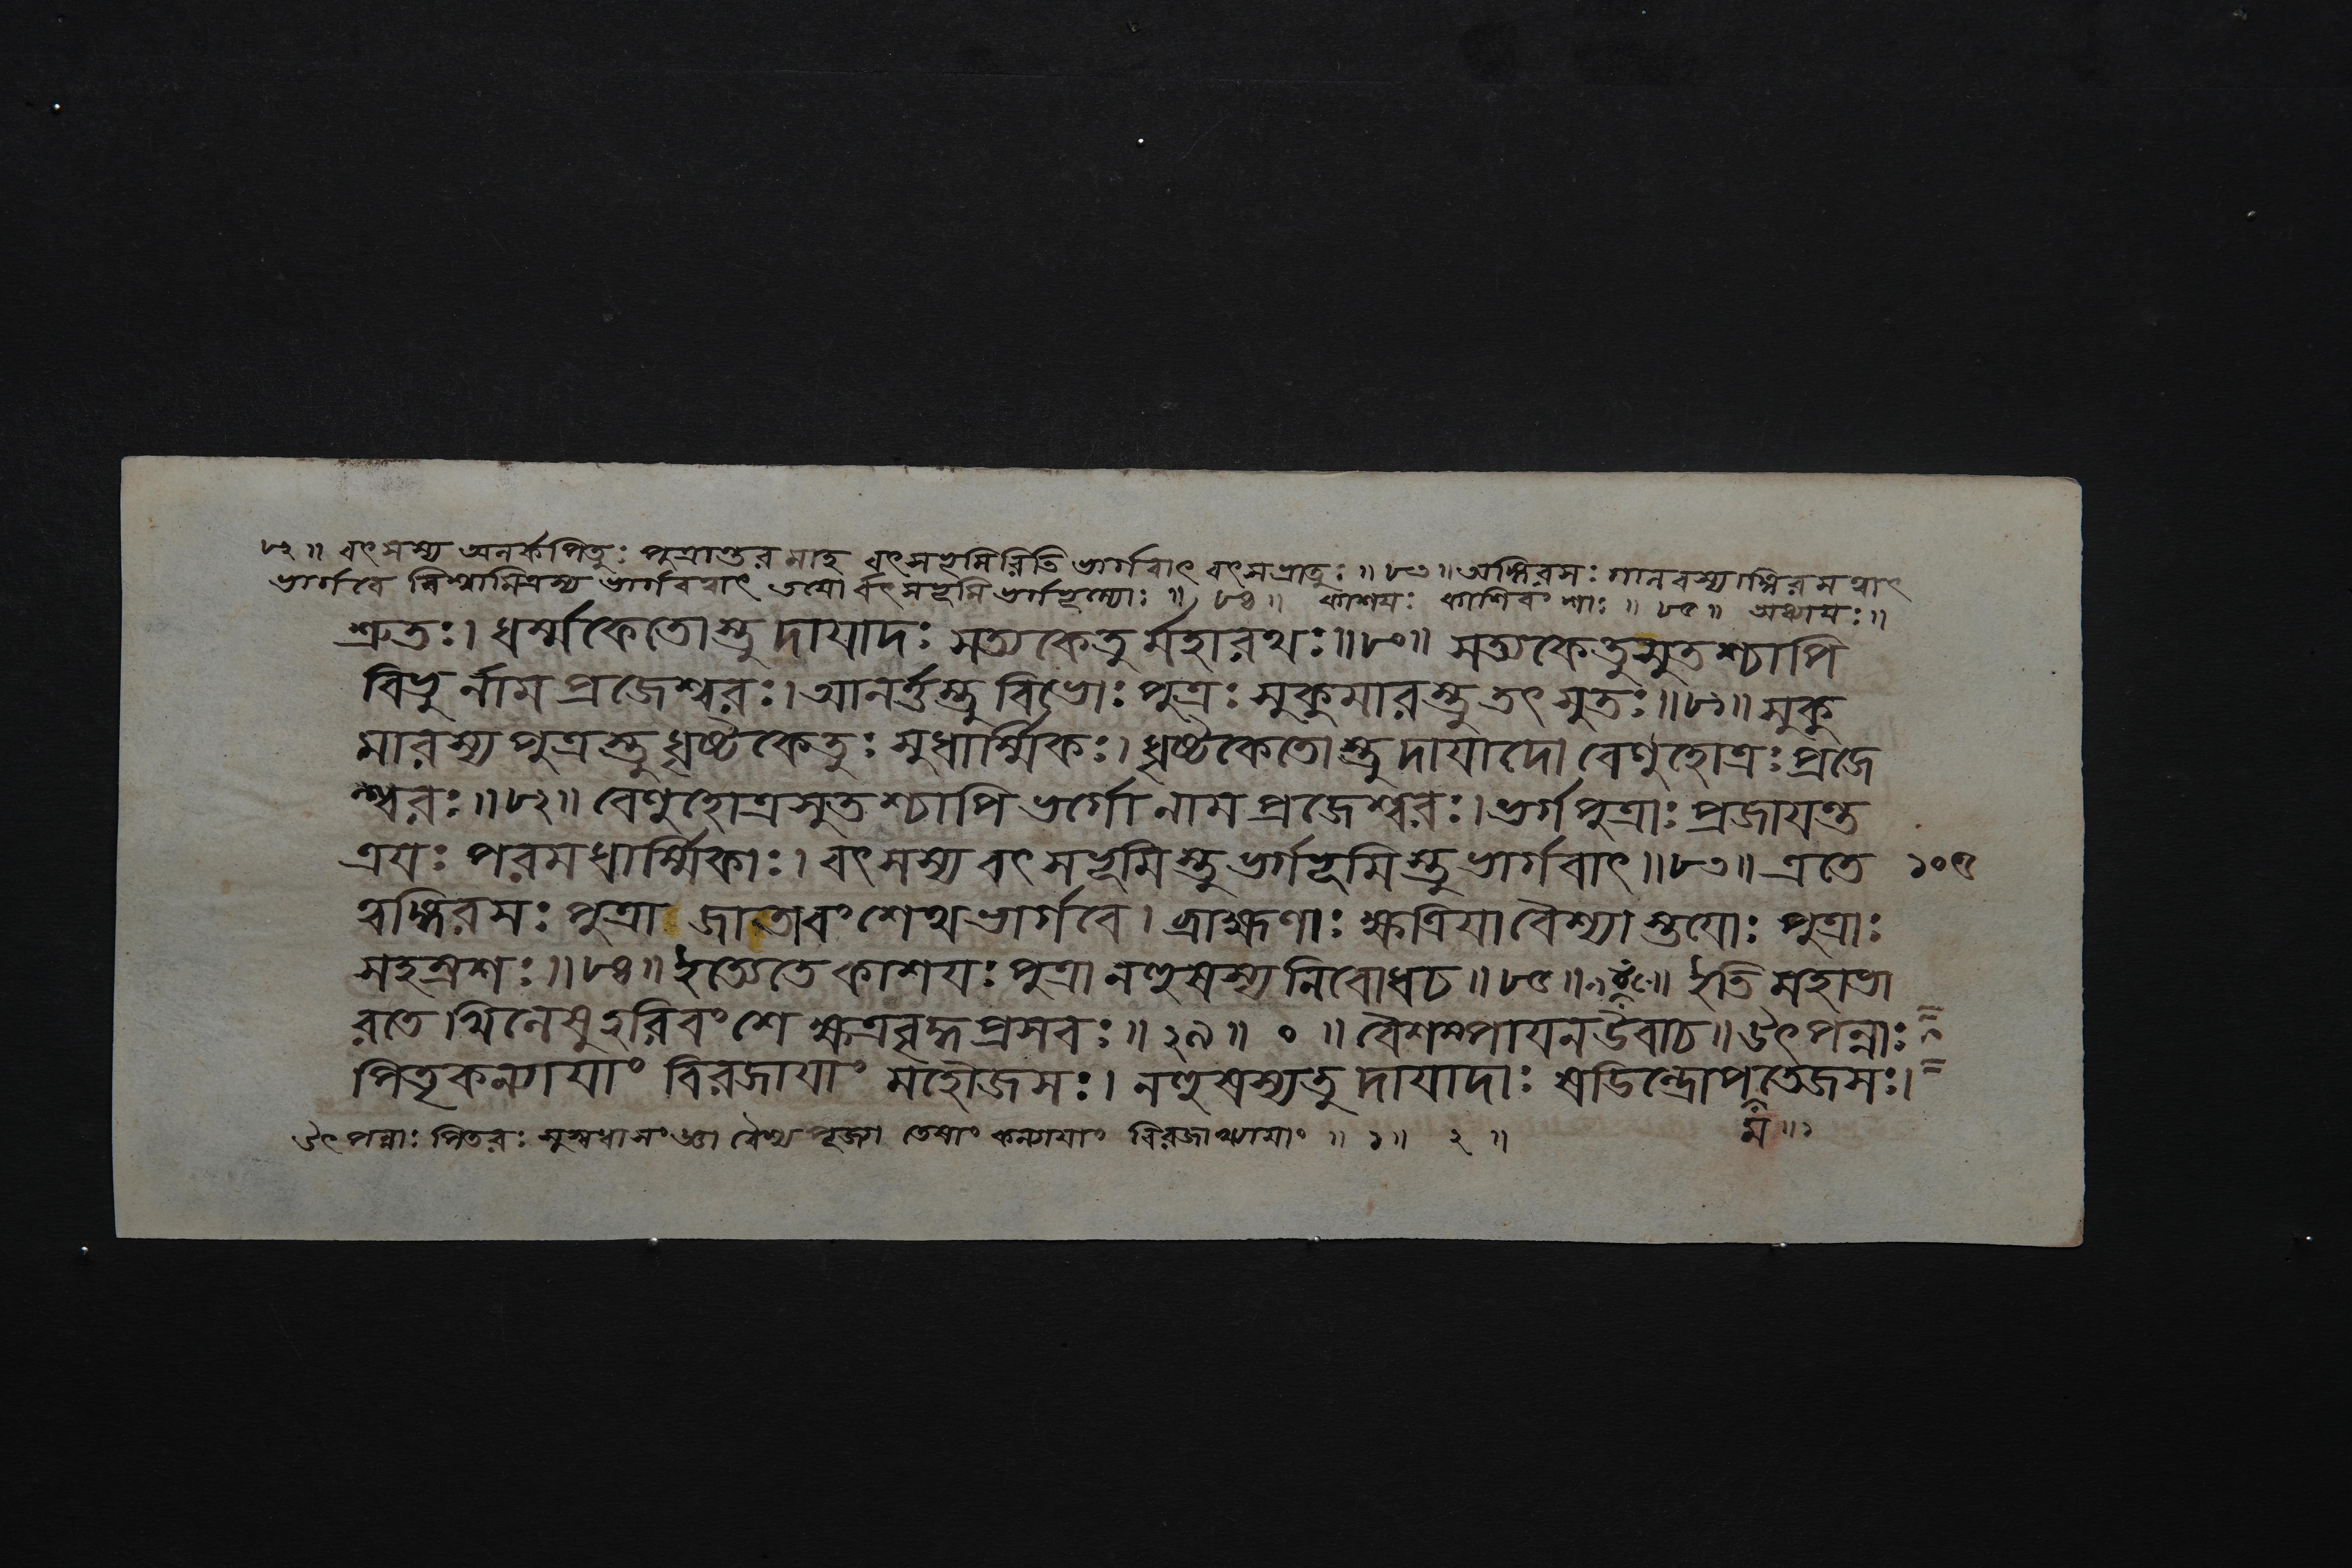 ৮২॥ বৎসস্য অলর্কপিতুঃ পুত্রান্তরমাহ বৎসভূমিরিতি ভার্গবাৎ বৎসভ্রাতুঃ॥৮৩॥ অঙ্গিরসঃ গালবস্যাঙ্গিরসত্বাৎ
ভার্গবে বিশ্বামিত্রস্য ভার্গবত্বাৎ তয়োর্বৎসভূমিভর্গভূম্যোঃ॥ ৮৪॥ কাশয়ঃ কাশিবংশাঃ॥ ৮৫॥ অধ্যায়ঃ॥
শ্রুতঃ। ধর্ম্মকেতোস্তু দায়াদঃ সত্যকেতুর্মহারথঃ॥৮০॥ সত্যকেতুসুতশ্চাপি
বিভুর্নাম প্রজেশ্বরঃ। আনর্ত্তস্তু বিভোঃ পুত্রঃ সুকুমারস্তু তৎসুতঃ॥৮১॥ সুকু
মারস্য পুত্রস্তু ধৃষ্টকেতুঃ সুধার্ম্মিকঃ। ধৃষ্টকেতোস্তু দায়াদো বেণুহোত্রঃ প্রজে
শ্বরঃ॥৮২॥ বেণুহোত্রসুতশ্চাপি ভর্গো নাম প্রজেশ্বরঃ। ভর্গপুত্রাঃ প্রজায়ন্ত
ত্রয়ঃ পরমধার্ম্মিকাঃ। বৎসস্য বৎসভূমিস্তু ভর্গভূমিস্তু ভার্গবাৎ॥৮৩॥ এতে ১০৫
ত্বঙ্গিরসঃ পুত্রা জাতা বংশেথ ভার্গবে। ব্রাহ্মণাঃ ক্ষত্রিয়া বৈশ্যাস্তয়োঃ পুত্রাঃ
সহস্রশঃ॥৮৪॥ ইত্যেতে কাশয়ঃ পুত্রা নহুষস্য নিবোধত॥৮৫॥ ইতি মহাভা
রতে খিলেষু হরিবংশে ক্ষত্রবৃদ্ধপ্রসবঃ॥২৯॥ ০ ॥ বৈশম্পায়ন উবাচ॥ উৎপন্নাঃ
পিতৃকন্যায়াং বিরজায়াং মহৌজসঃ। নহুষস্য তু দায়াদাঃ ষডিন্দ্রোপতেজসঃ।
উৎপন্নাঃ পিতরঃ সুস্বধাসংজ্ঞা বৈশ্যপূজ্যা তেষাং কন্যায়াং বিরজাখ্যায়াং॥ ১॥ ২॥ ম॥১